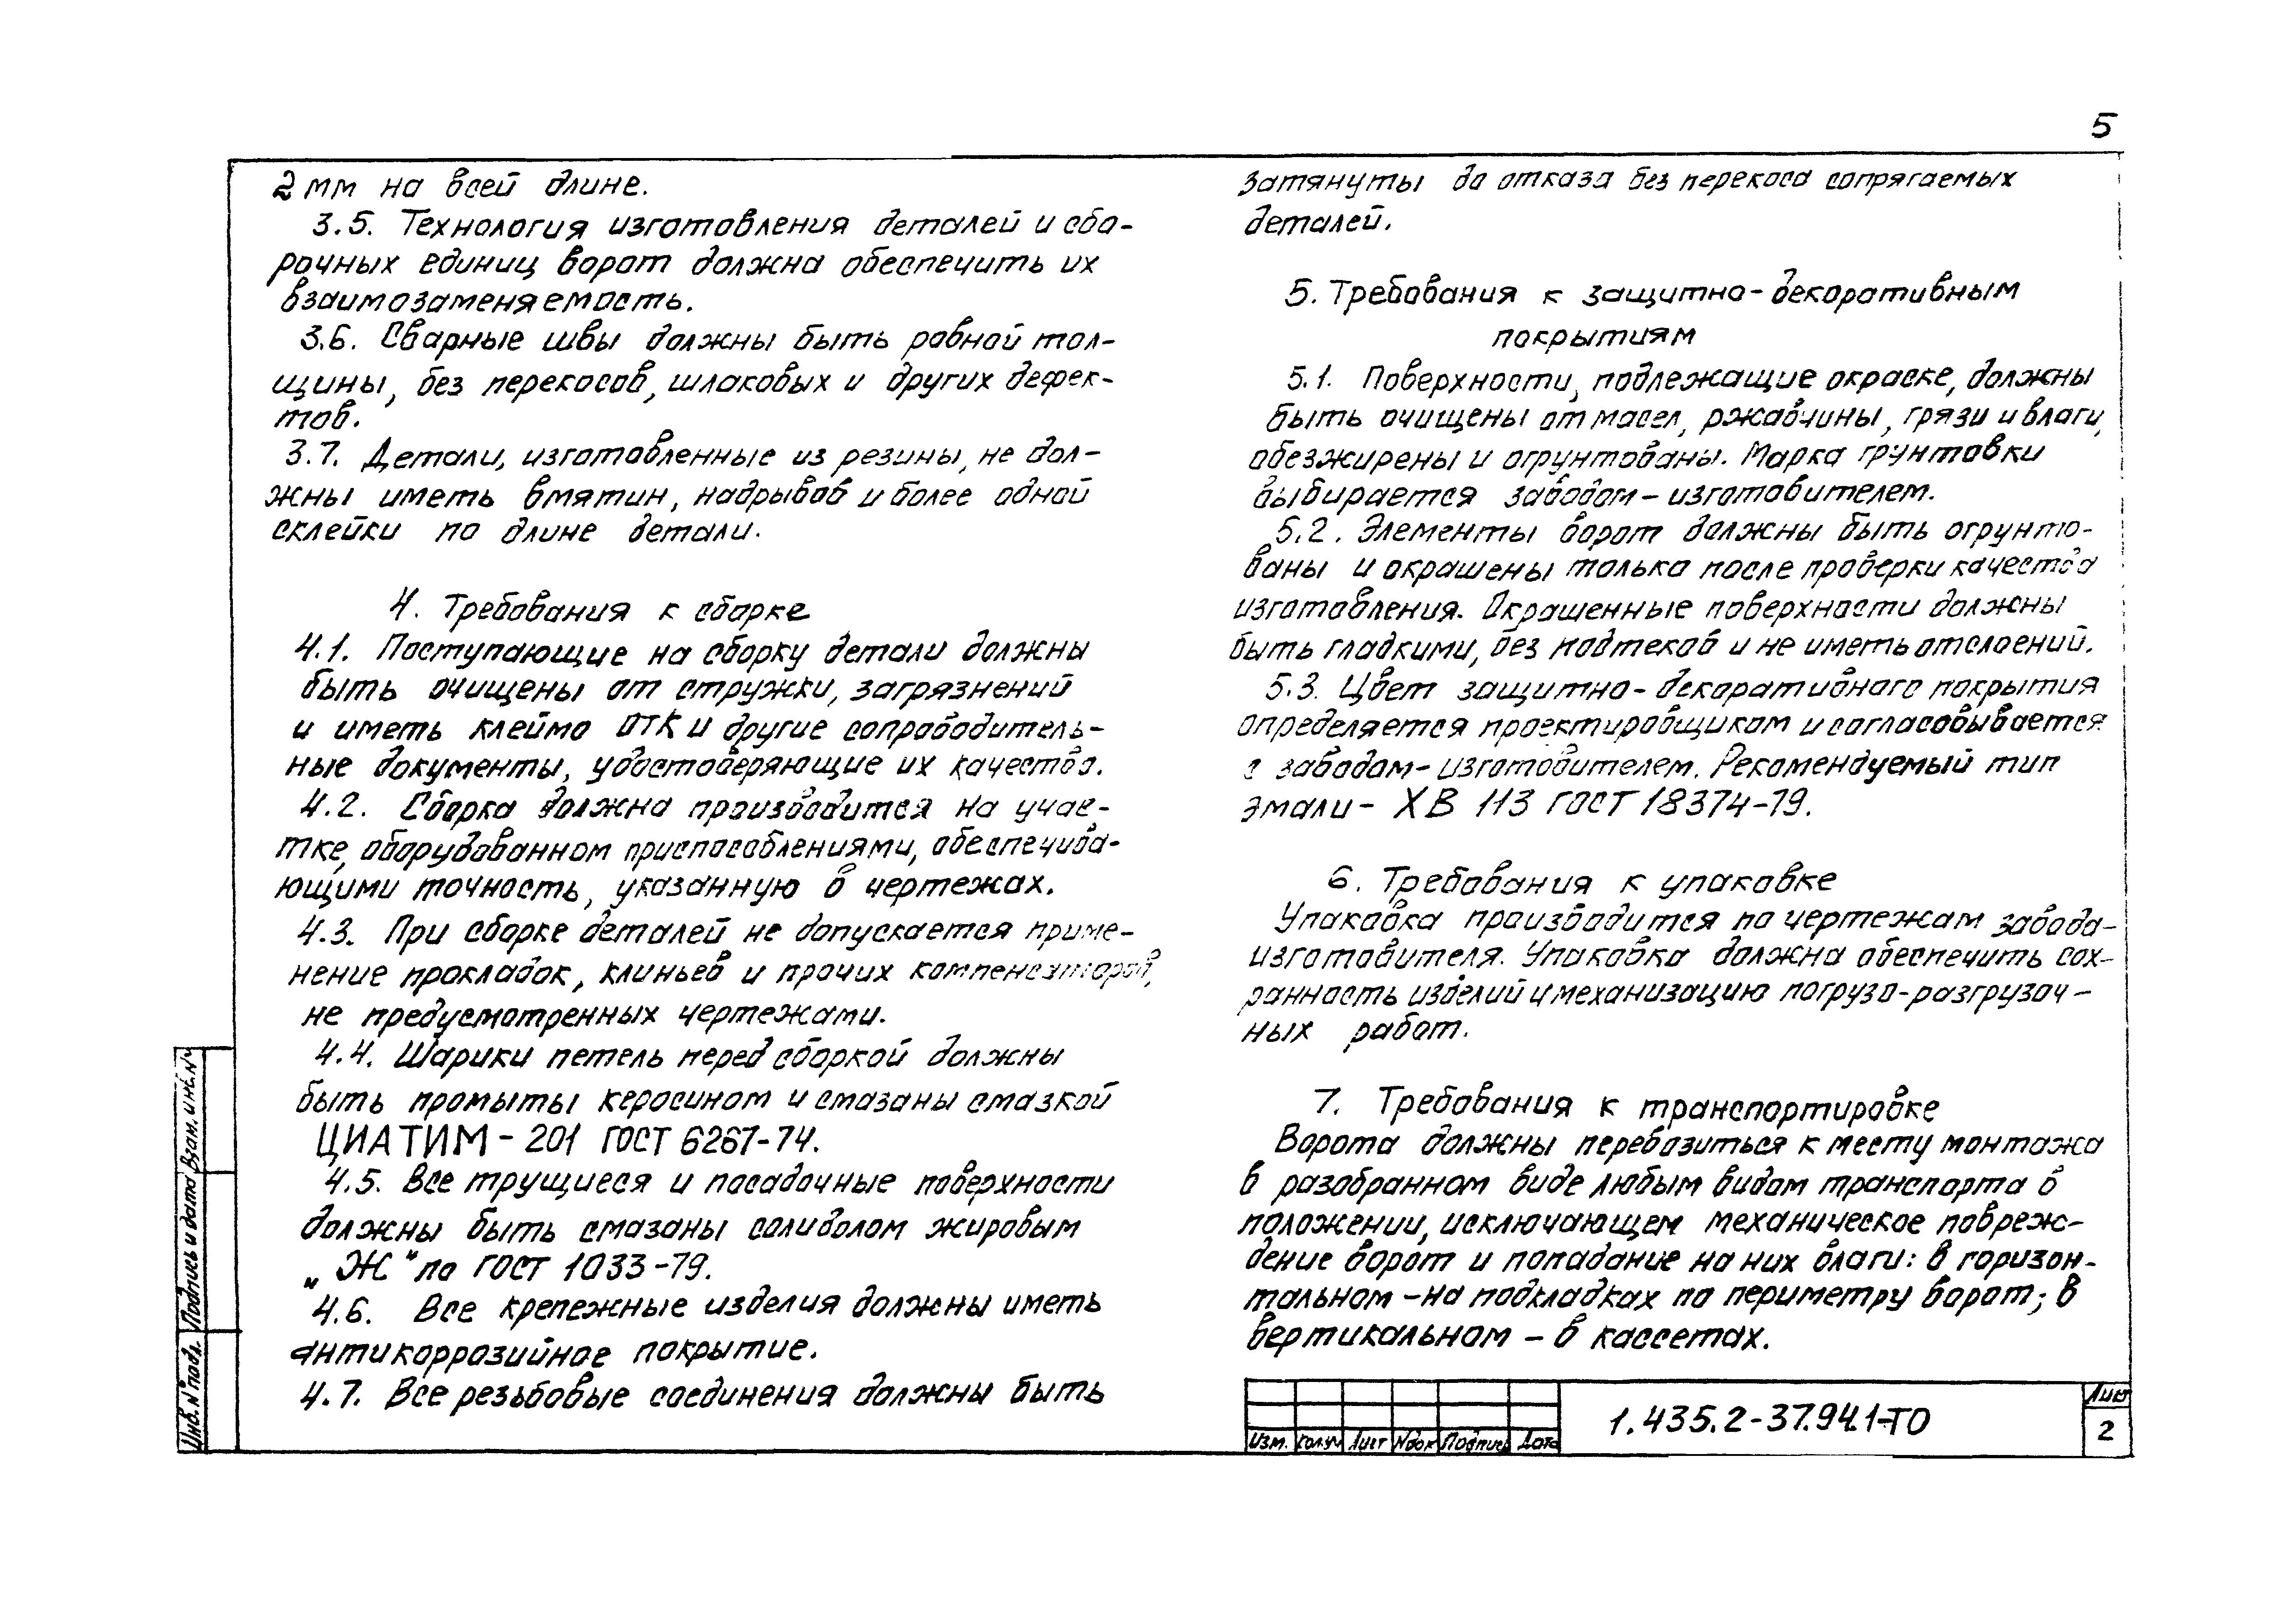 5
2 мм на всей длине.
3.5. Технология изготовления деталей и сбо-
рочных единиц ворот должна обеспечить их
взаимозаменяемость.
3.6. Сварные швы должны быть ровной тол-
щины, без перекосов, шлаковых и других дефек-
тов.
3.7. Детали, изготовленные из резины, не дол-
жны иметь вмятин, надрывов и более одной
склейки по длине детали.
4. Требования к сборке
4.1. Поступающие на сборку детали должны
быть очищены от стружки, загрязнений
и иметь клеймо ОТК и другие сопроводитель-
ные документы, удостоверяющие их качество.
4.2. Сборка должна производится на учас-
тке, оборудованном приспособлениями, обеспечива-
ющими точность, указанную в чертежах.
4.3. При сборке деталей не допускается приме-
нение прокладок, клиньев и прочих компенсаторов,
не предусмотренных чертежами.
4.4. Шарики петель перед сборкой должны
быть промыты керосином и смазаны смазкой
ЦИАТИМ - 201 ГОСТ 6267-74.
4.5. Все трущиеся и посадочные поверхности
должны быть смазаны солидолом жировым
„Ж" по ГОСТ 1033-79.
4.6. Все крепежные изделия должны иметь
антикоррозийное покрытие.
4.7. Все резьбовые соединения должны быть
затянуты до отказа без перекоса сопрягаемых
деталей.
5. Требования к защитно-декоративным
покрытиям
5.1. Поверхности, подлежащие окраске, должны
быть очищены от масел, ржавчины, грязи и влаги,
обезжирены и огрунтованы. Марка грунтовки
выбирается заводом-изготовителем.
5.2. Элементы ворот должны быть огрунто-
ваны и окрашены только после проверки качества
изготовления. Окрашенные поверхности должны
быть гладкими, без подтеков и не иметь отслоений.
5.3. Цвет защитно-декоративного покрытия
определяется проектировщиком и согласовывается
с заводом-изготовителем. Рекомендуемый тип
эмали - ХВ 113 ГОСТ 18374-79.
6. Требования к упаковке
Упаковка производится по чертежам завода-
изготовителя. Упаковка должна обеспечить сох-
ранность изделий и механизацию погрузо-разгрузоч-
ных работ.
7. Требования к транспортировке
Ворота должны перевозиться к месту монтажа
в разобранном виде любым видом транспорта в
положении, исключающем механическое повреж-
дение ворот и попадание на них влаги: в горизон-
тальном - на подкладках по периметру ворот; в
вертикальном - в кассетах.
Инв. № подл. Подпись и дата Взам. инв. №
Изм. Кол.уч Лист №док Подпись Дата
1.435.2-37.94.1-ТО
Лист
2